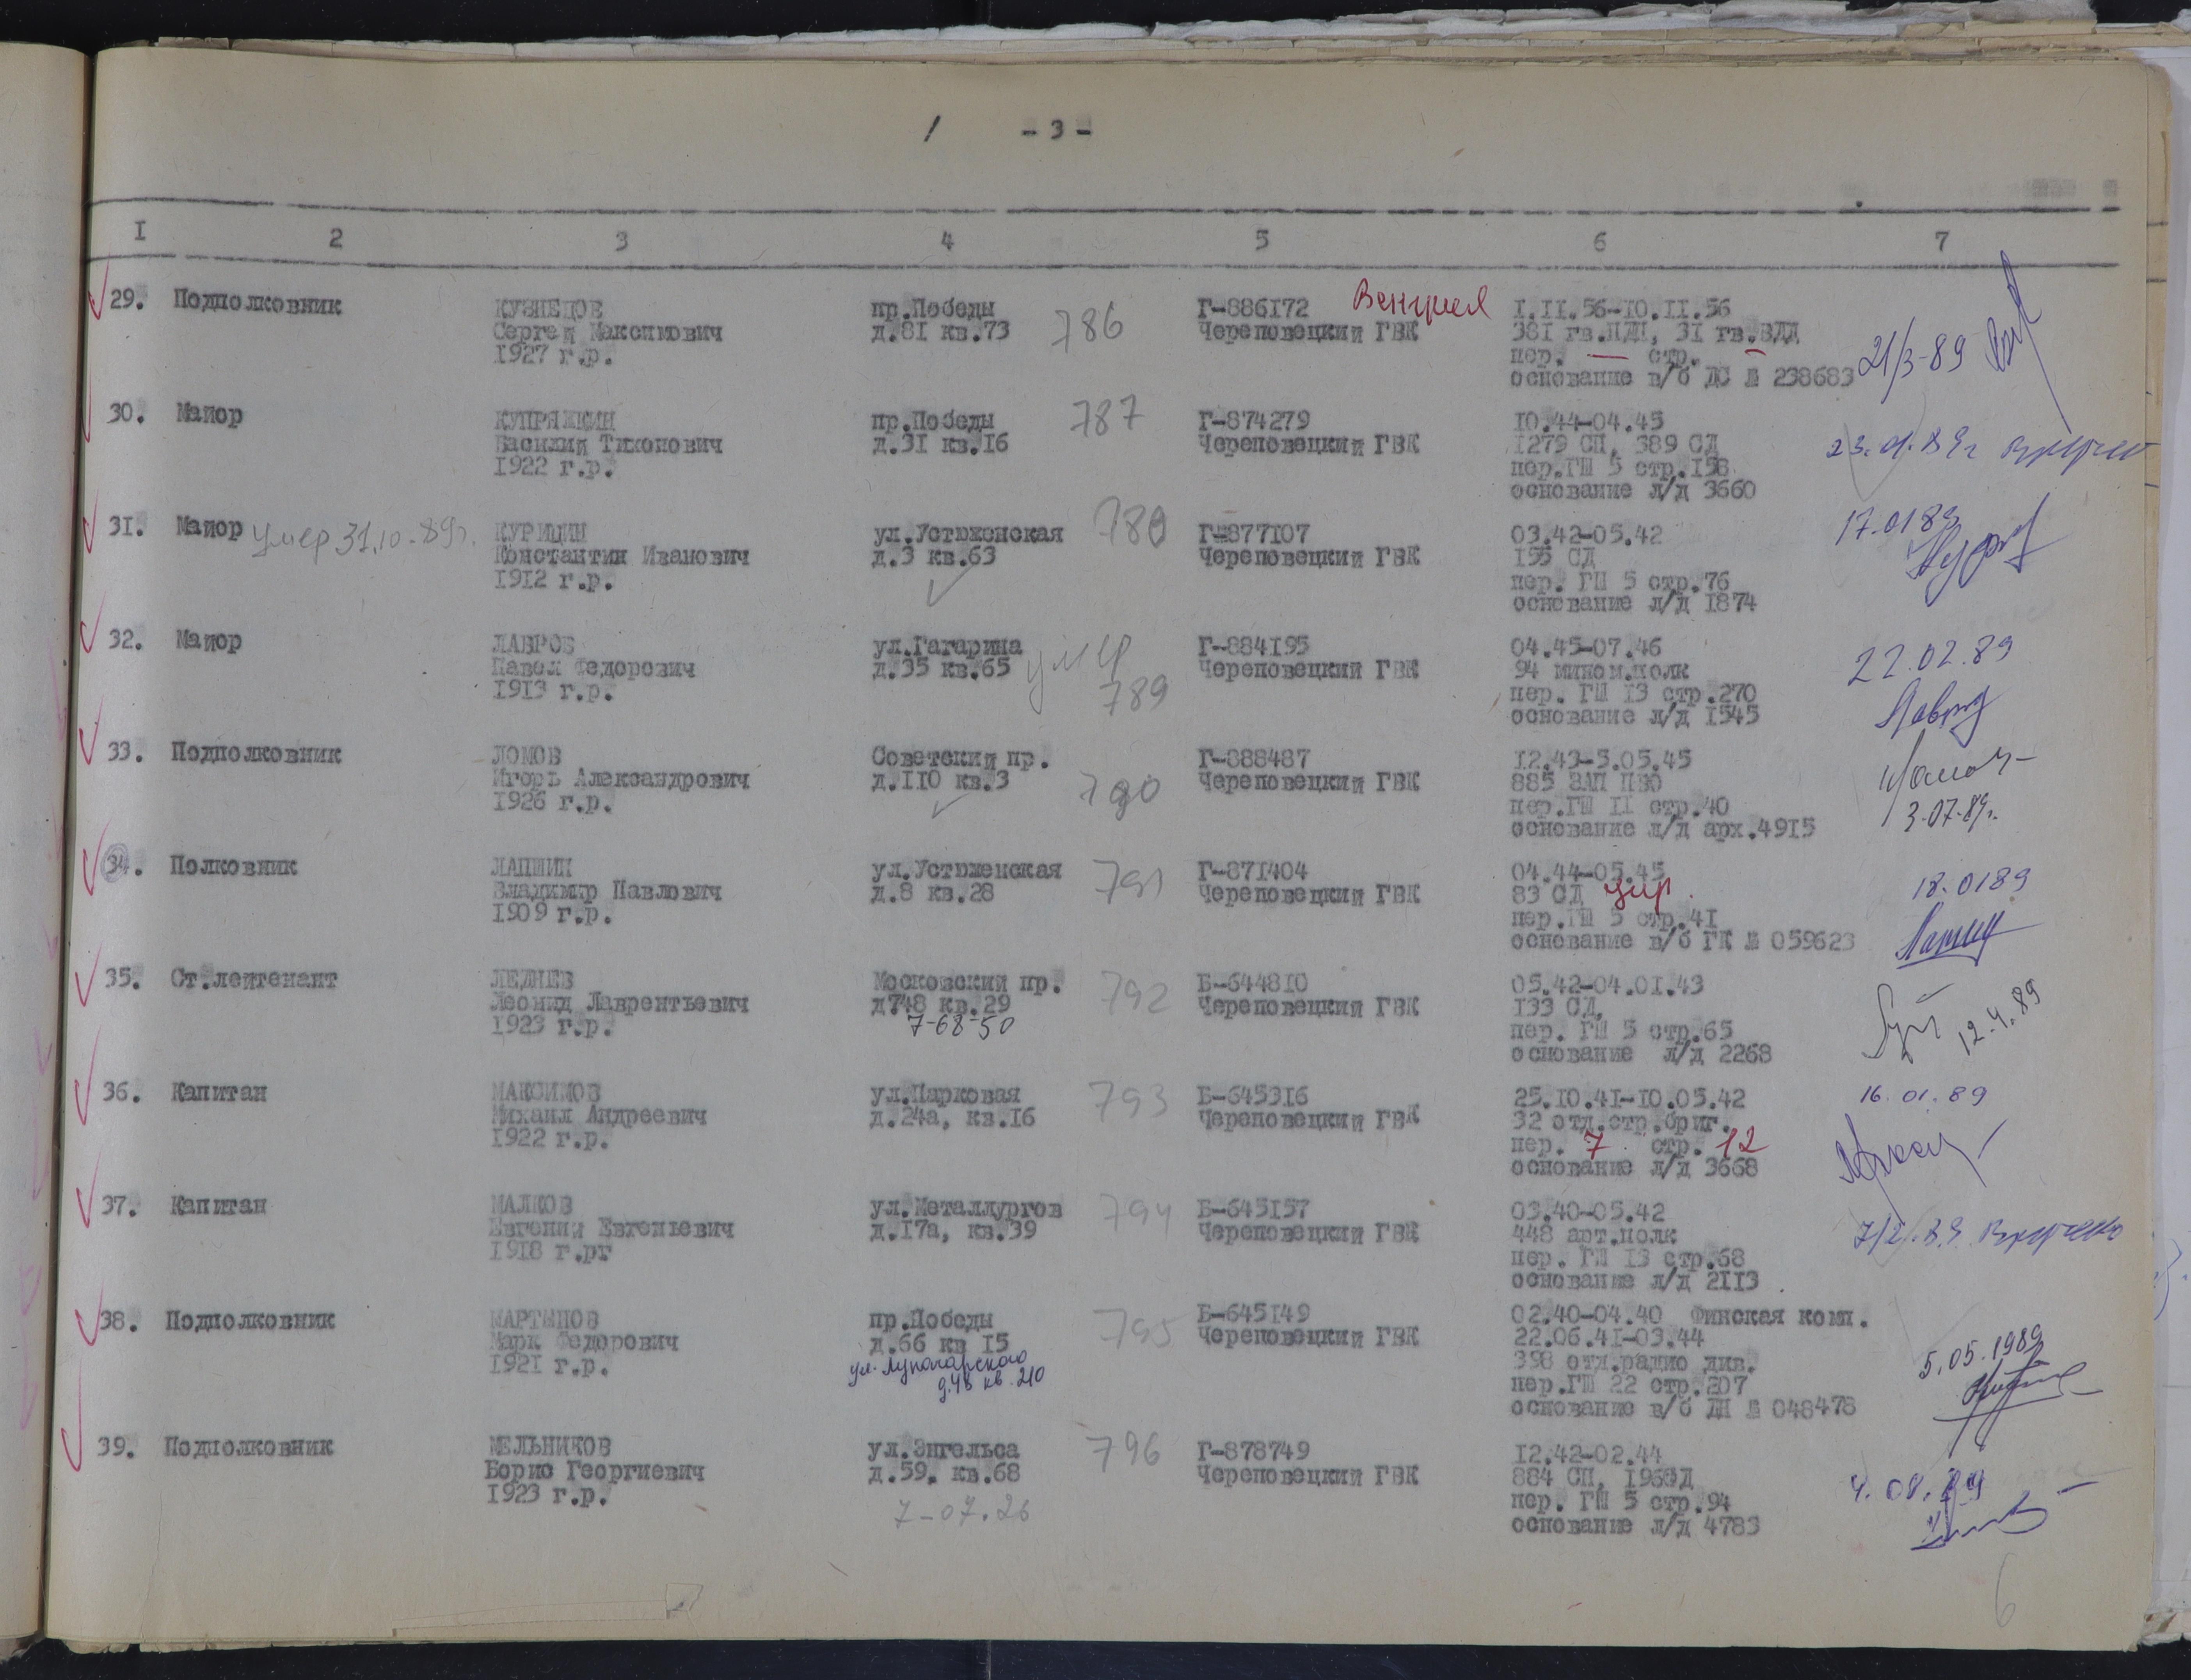 / - 3 -
I 2 3 4 5 6 7
29. Подполковник КУЗНЕЦОВ пр.Победы 786 Г-886172 Венгрия I.II.56-I0.II.56
Сергей Максимович д.8I кв.73 Череповецкий ГВК 38I гв.ПДП, 3I гв.ВДД
I927 г.р. пер. — стр. —
основание в/б ДС № 238683 21/3-89
30. Майор КУПРЯШКИН пр.Победы 787 Г-874279 I0.44-04.45
Василий Тихонович д.3I кв.I6 Череповецкий ГВК I279 СП, 389 СД 23.01.89г Вручено
I922 г.р. пер.ГШ 5 стр.I58
основание л/д 3660
3I. Майор умер 31.10.89г. КУРИЦИН ул.Устюженская 788 Г-877I07 03.42-05.42 17.0189
Константин Иванович д.3 кв.63 Череповецкий ГВК I55 СД
I9I2 г.р. пер. ГШ 5 стр.76
основание л/д I874
32. Майор ЛАВРОВ ул.Гагарина умер Г-884I95 04.45-07.46 22.02.89
Павел Федорович д.35 кв.65 Череповецкий ГВК 94 мином.полк
I9I3 г.р. 789 пер. ГШ I3 стр.270
основание л/д I545
33. Подполковник ЛОМОВ Советский пр. Г-888487 I2.43-5.05.45
Игорь Александрович д.II0 кв.3 790 Череповецкий ГВК 885 ЗАП ПВО
I926 г.р. пер.ГШ II стр.40 3.07.89г.
основание л/д арх.49I5
34. Полковник ЛАПШИН ул.Устюженская 791 Г-87I404 04.44-05.45
Владимир Павлович д.8 кв.28 Череповецкий ГВК 83 СД 18.0189
I909 г.р. пер.ГШ 5 стр.4I
основание в/б ГК № 059623
35. Ст.лейтенант ЛЕДНЕВ Московский пр. 792 Б-6448I0 05.42-04.0I.43
Леонид Лаврентьевич д748 кв.29 Череповецкий ГВК I33 СД,
I923 г.р. 7-68-50 пер. ГШ 5 стр.65 12.4.89
основание л/д 2268
36. Капитан МАКСИМОВ ул.Парковая 793 Б-6453I6 25.I0.4I-I0.05.42 16.01.89
Михаил Андреевич д.24а, кв.I6 Череповецкий ГВК 32 отд.стр.бриг.
I922 г.р. пер. 7 стр. 12
основание л/д 3668
37. Капитан МАЛКОВ ул.Металлургов 794 Б-645I57 03.40-05.42
Евгений Евгеньевич д.I7а, кв.39 Череповецкий ГВК 448 арт.полк 7/2.89 Вручено
I9I8 г.рг пер. ГШ I3 стр.68
основание л/д 2II3
38. Подполковник МАРТЫНОВ пр.Победы 795 Б-645I49 02.40-04.40 Финская комп.
Марк Федорович д.66 кв I5 Череповецкий ГВК 22.06.4I-03.44
I92I г.р. ул. Луначарского 398 отд.радио див. 5.05.1989
д.48 кв.210 пер.ГШ 22 стр.207
основание в/б ДН № 048478
39. Подполковник МЕЛЬНИКОВ ул.Энгельса 796 Г-878749 I2.42-02.44
Борис Георгиевич д.59, кв.68 Череповецкий ГВК 884 СП, I96СД 4.08.89
I923 г.р. 7-07.26 пер. ГШ 5 стр.94
основание л/д 4783
6